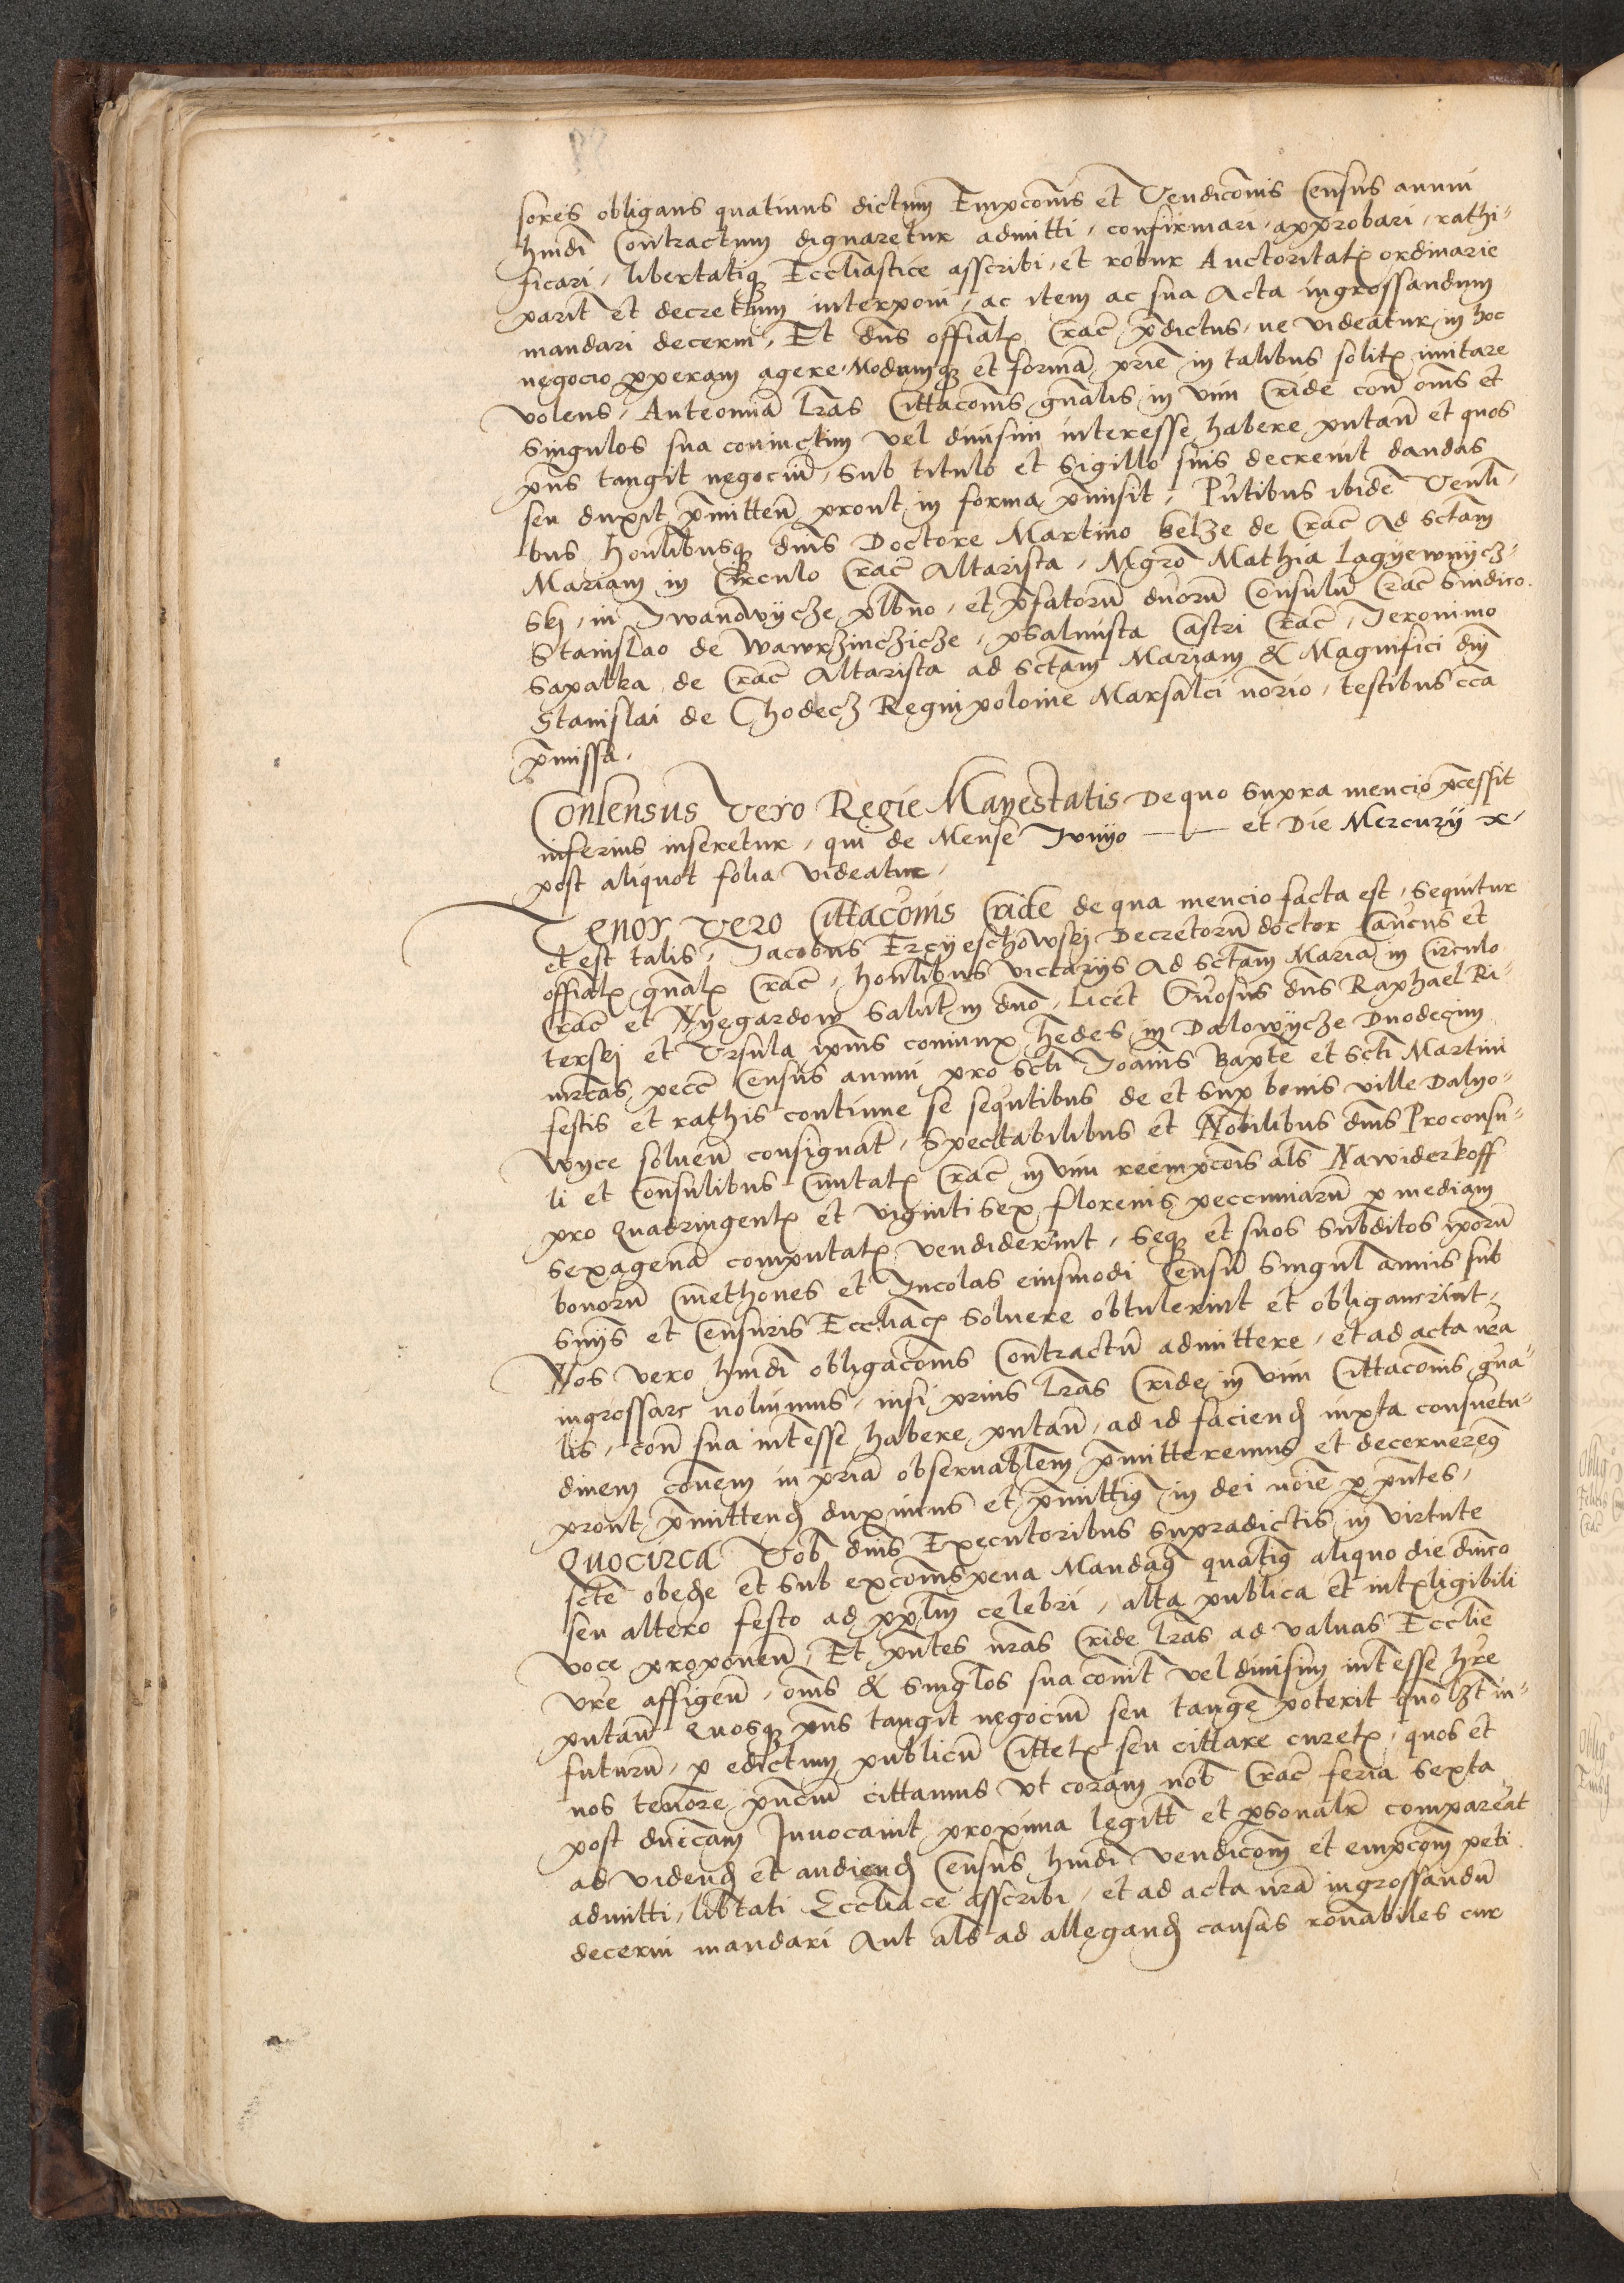 sores obligans quatinus dictum Empcõnis et Vendicõnis Census annui
hmõdi Contractum dignaretur admitti, confirmari, approbari, rathi-
ficari, libertatiq₃ Eccl̃iastice asscribi, et robur Auctoritatꝭ ordinarie
parit̃ et decretum interponi, ac item ac sua Acta ingrossandum
mandari decerni, Et dñs offialꝭ Crac̃ p̃dictus, ne videatur in hoc
negocio ꝑperam agere, Modumq₃ et formã prie in talibus solitꝭ imitare
volens, Anteomnia l̃ras Cittacõnis gñalis in vim Cride con̄ om̃s et
singulos sua coniunctim vel diuisim interesse habere putan̄ et quos
p̃ns tangit negociũ, sub titulo et Sigillo suis decreuit dandas
seu duxit p̃mitten̄ prout in forma p̃misit, P̃ntibus ibidẽ Venli-
bus honl̃ibusq₃ dñis Doctore Martino Belze de Crac̃ Ad Sctam
Mariam in Circulo Crac̃ Altarista, Mgr̃o Mathia Lagyewnycz-
skj, in Iwanowycze pl̃bno, et p̃fatorũ dnorũ Consulũ Crac̃ Sindico
Stanislao de Wawrzinczicze, psalmista Castri Crac̃, Ieronimo
Sapalka de Crac̃ Altarista ad Sctam Mariam & Magnifici dñi
Stanislai de Chodecz Regni polonie Marsalci notrio, testibus cca
p̃missa.
Consensus Vero Regie Mayestatis De quo supra mencio p̃cessit
inferius inseretur, qui de Mense Iunyo — et Die Mercury x.
post aliquot folia videatur.
Tenor Vero Cittacõnis Cride de qua mencio facta est, sequitur
et est talis, Iacobus Erczyeschowskj Decretorũ doctor Canõcus et
offialꝭ gñalꝭ Crac̃, honl̃ibus victariis Ad Sctam Mariã in Circulo
Crac̃ et Nyegardow Salut̃ in dño, Licet Gñosus dñs Raphael Ri-
terskj et Vrsula ipius coniunx h̃edes in Dalowycze Duodecim
mr̃cas pecc̃ Census annui pro Scti Ioanis Bapte et Scti Martini
festis et rathis continue se sequtibus de et sup bonis ville Dalyo-
wyce soluen̄ consignat̃, Spectabilibus et Nobilibus dñis Proconsu-
li et Consulibus Ciuitatꝭ Crac̃ in vim reempcõis als Nawiderkoff
pro Quadringentꝭ et viginti sex florenis pecuniarũ ꝑ mediam
sexagenã computatꝭ vendiderint, seq₃ et suos subditos ipsorũ
bonorũ Cmethones et Incolas eiusmodi Censũ singul̃ annis sub
sniis et Censuris Eccl̃iacꝭ soluere obtulerint et obligauerint,
Nos vero hmõdi obligacõnis Contractũ admittere, et ad acta nr̃a
ingrossare noluimus, nisi prius l̃ras Cride in vim Cittacõnis gña-
lis, con̄ sua int̃esse habere putan̄, ad id faciend̃ iuxta consuetu-
dinem cõnem in pria obseruabl̃em p̃mitteremus et decerneremꝰ
prout p̃mittend̃ duximus et p̃mittimꝰ in dei noĩe ꝑ p̃ntes,
Quocirca Vob̃ dñis Executoribus supradictis in virtute
scte obed̃e et sub excõmis pena Mandamꝰ quatinꝰ aliquo die dnĩco
seu altero festo ad ppl̃m celebri, alta publica et intꝭligibili
voce proponen̄, Et p̃ntes nr̃as Cride l̃ras ad valuas Eccl̃ie
vr̃e affigen̄, om̃s & singl̃os sua coniũct vel diuisim int̃esse h̃re
putan̄ Quosq₃ p̃ns tangit negociũ seu tange poterit quol̃zt in-
futurũ, ꝑ edictum publicũ Cittetꝭ seu cittare curetꝭ, quos et
nos tenore p̃nciũ cittamus vt coram nob̃ Crac̃ feria sexta
post dnĩcam Inuocauit proxima legitt̃ et ꝑsonalr̃ compareãt
ad vidend̃ et audiend̃ Census hmõdi vendicõm et empcõm peti
admitti, lib̃tati Eccl̃iace asscribi, et ad acta nr̃a ingrossandũ
decerni mandari Aut als ad allegand̃ causas ronabiles cur